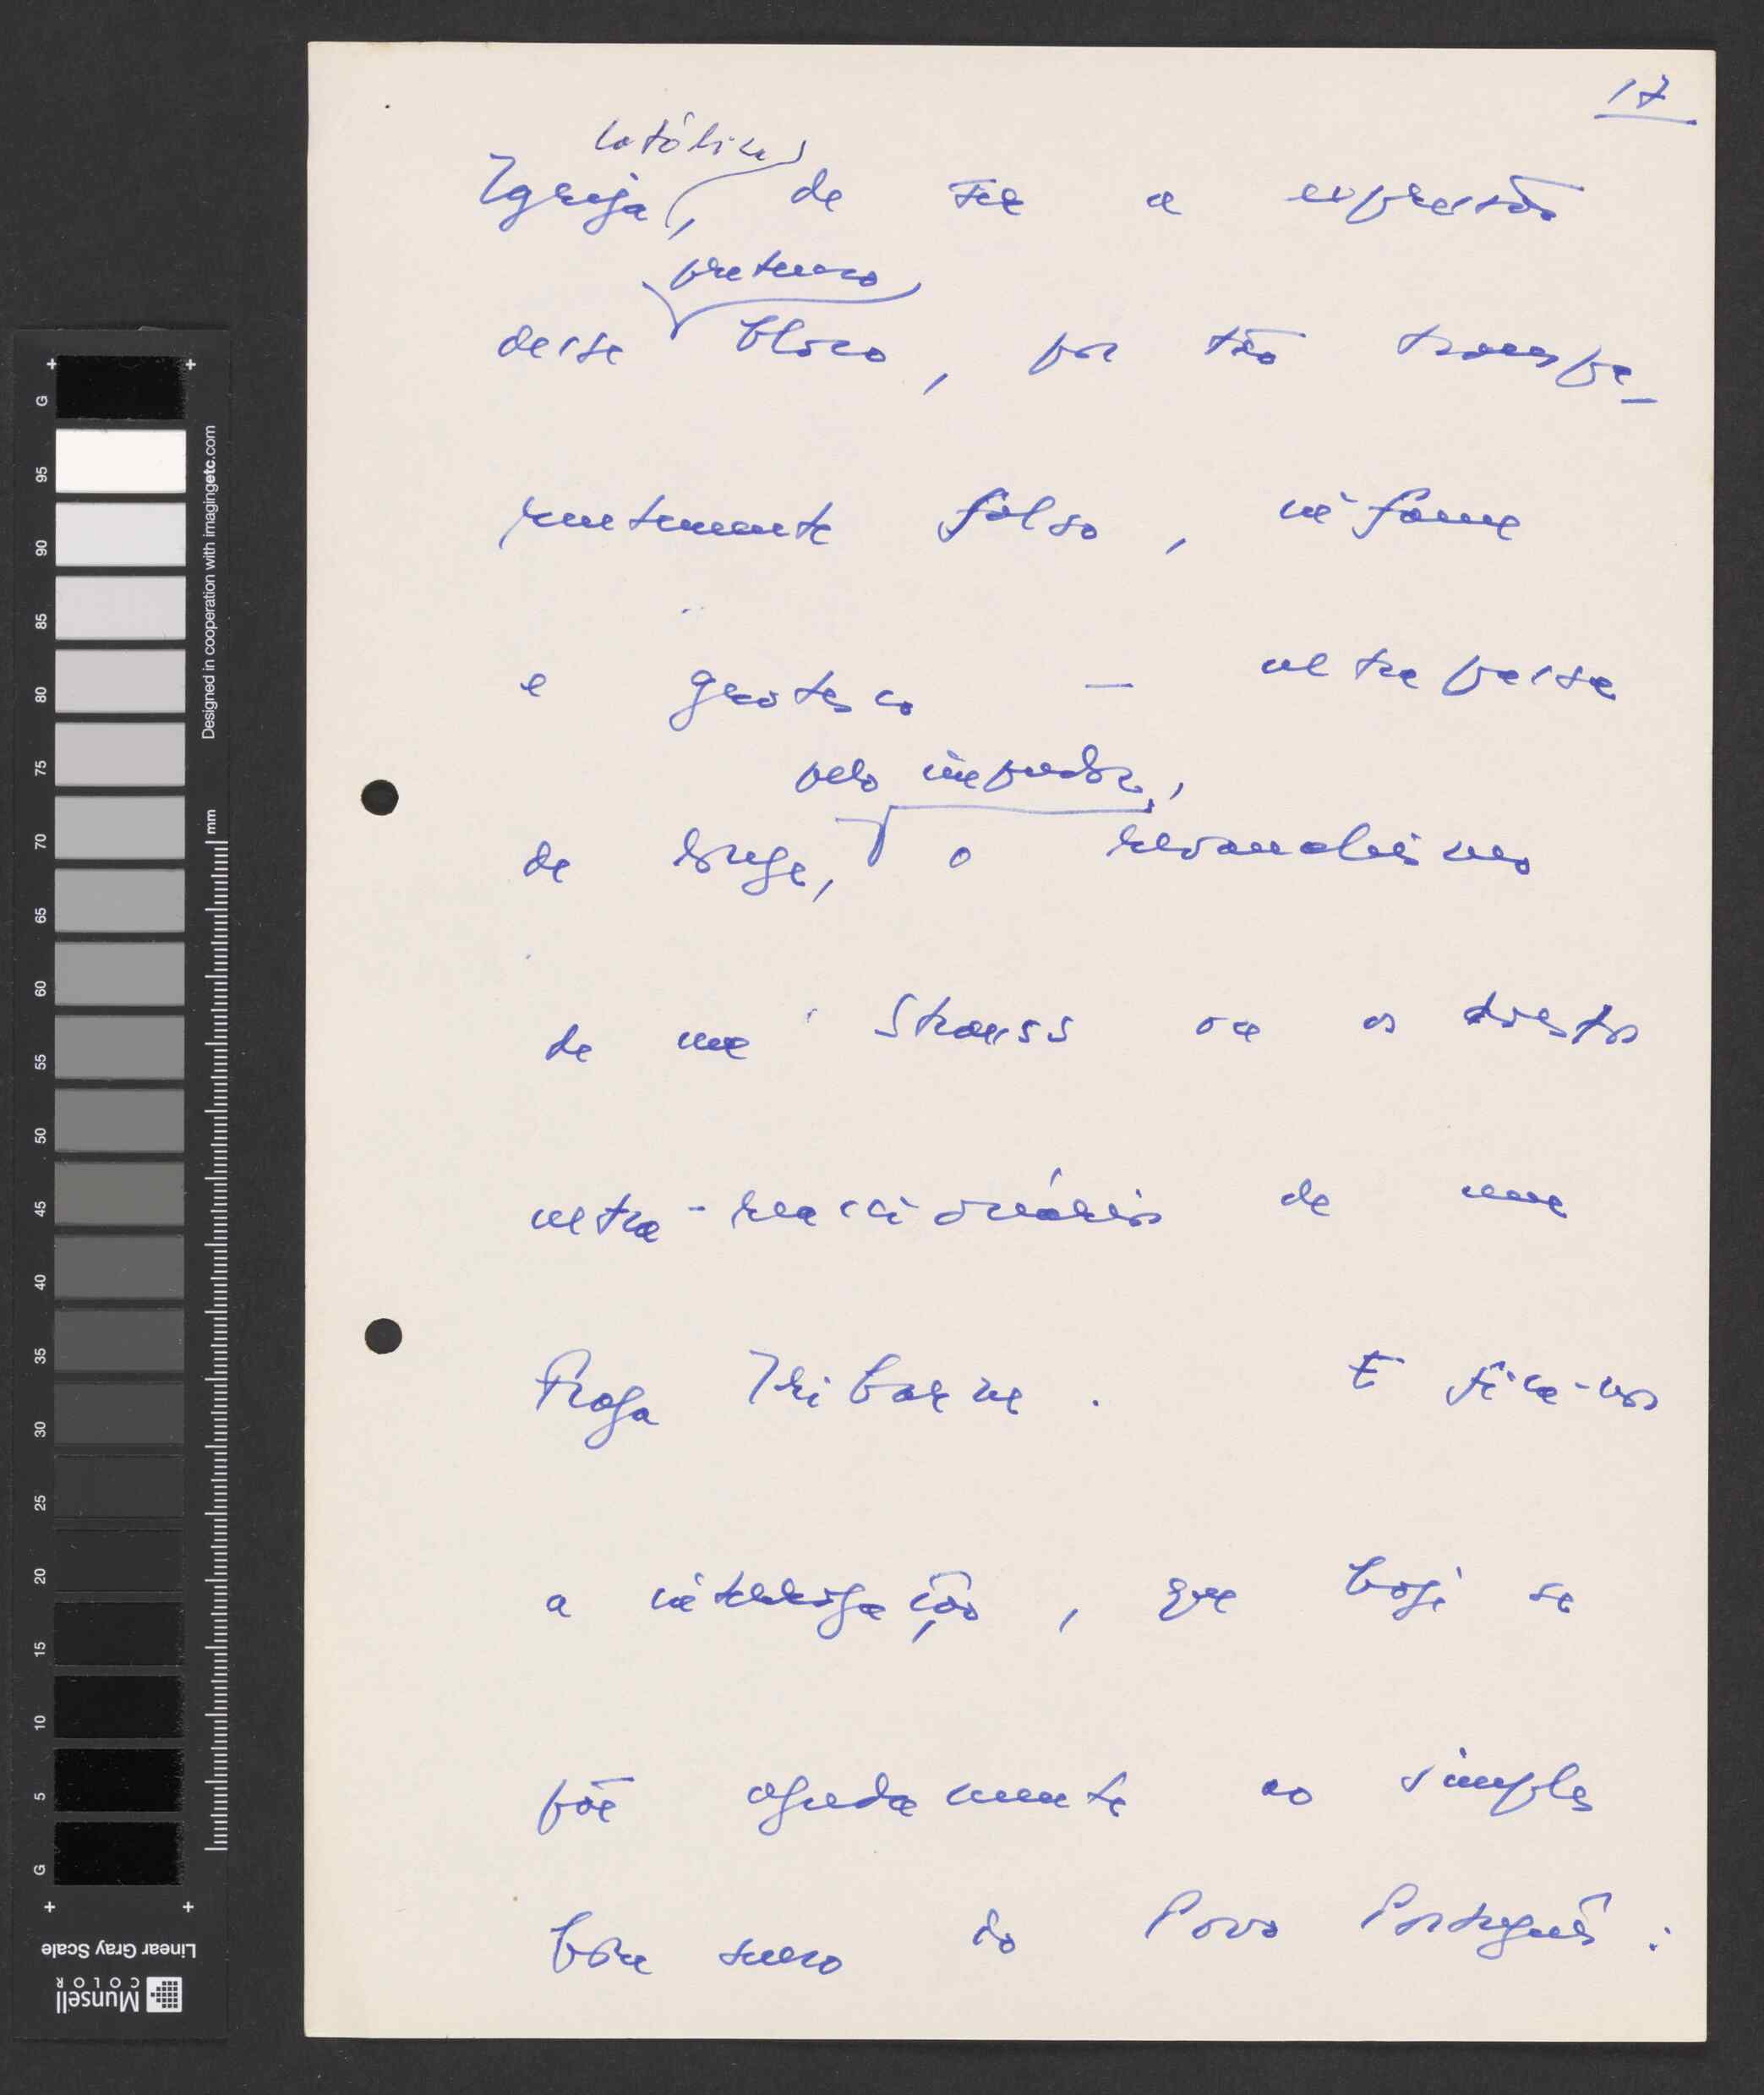 17
Católica
Igreja, de ser a expressão
pretenso
desse bloco, por tão transpa-
rentemente falso, infame
e grotesco — ultrapassa
pelo impudor,
de longe, o revanchismo
de um Strauss ou os
ultra-reaccionários de um
Fraga Iribarne. E fica-nos
a interrogação, que hoje se
põe agudamente ao simples
bom senso do Povo Português:
G
95
90
85
80
75
70
65
60
55
50
45
40
35
30
25
20
15
10
5
G
mm
Designed in cooperation with imagingetc.com
Linear Gray Scale
Munsell
COLOR